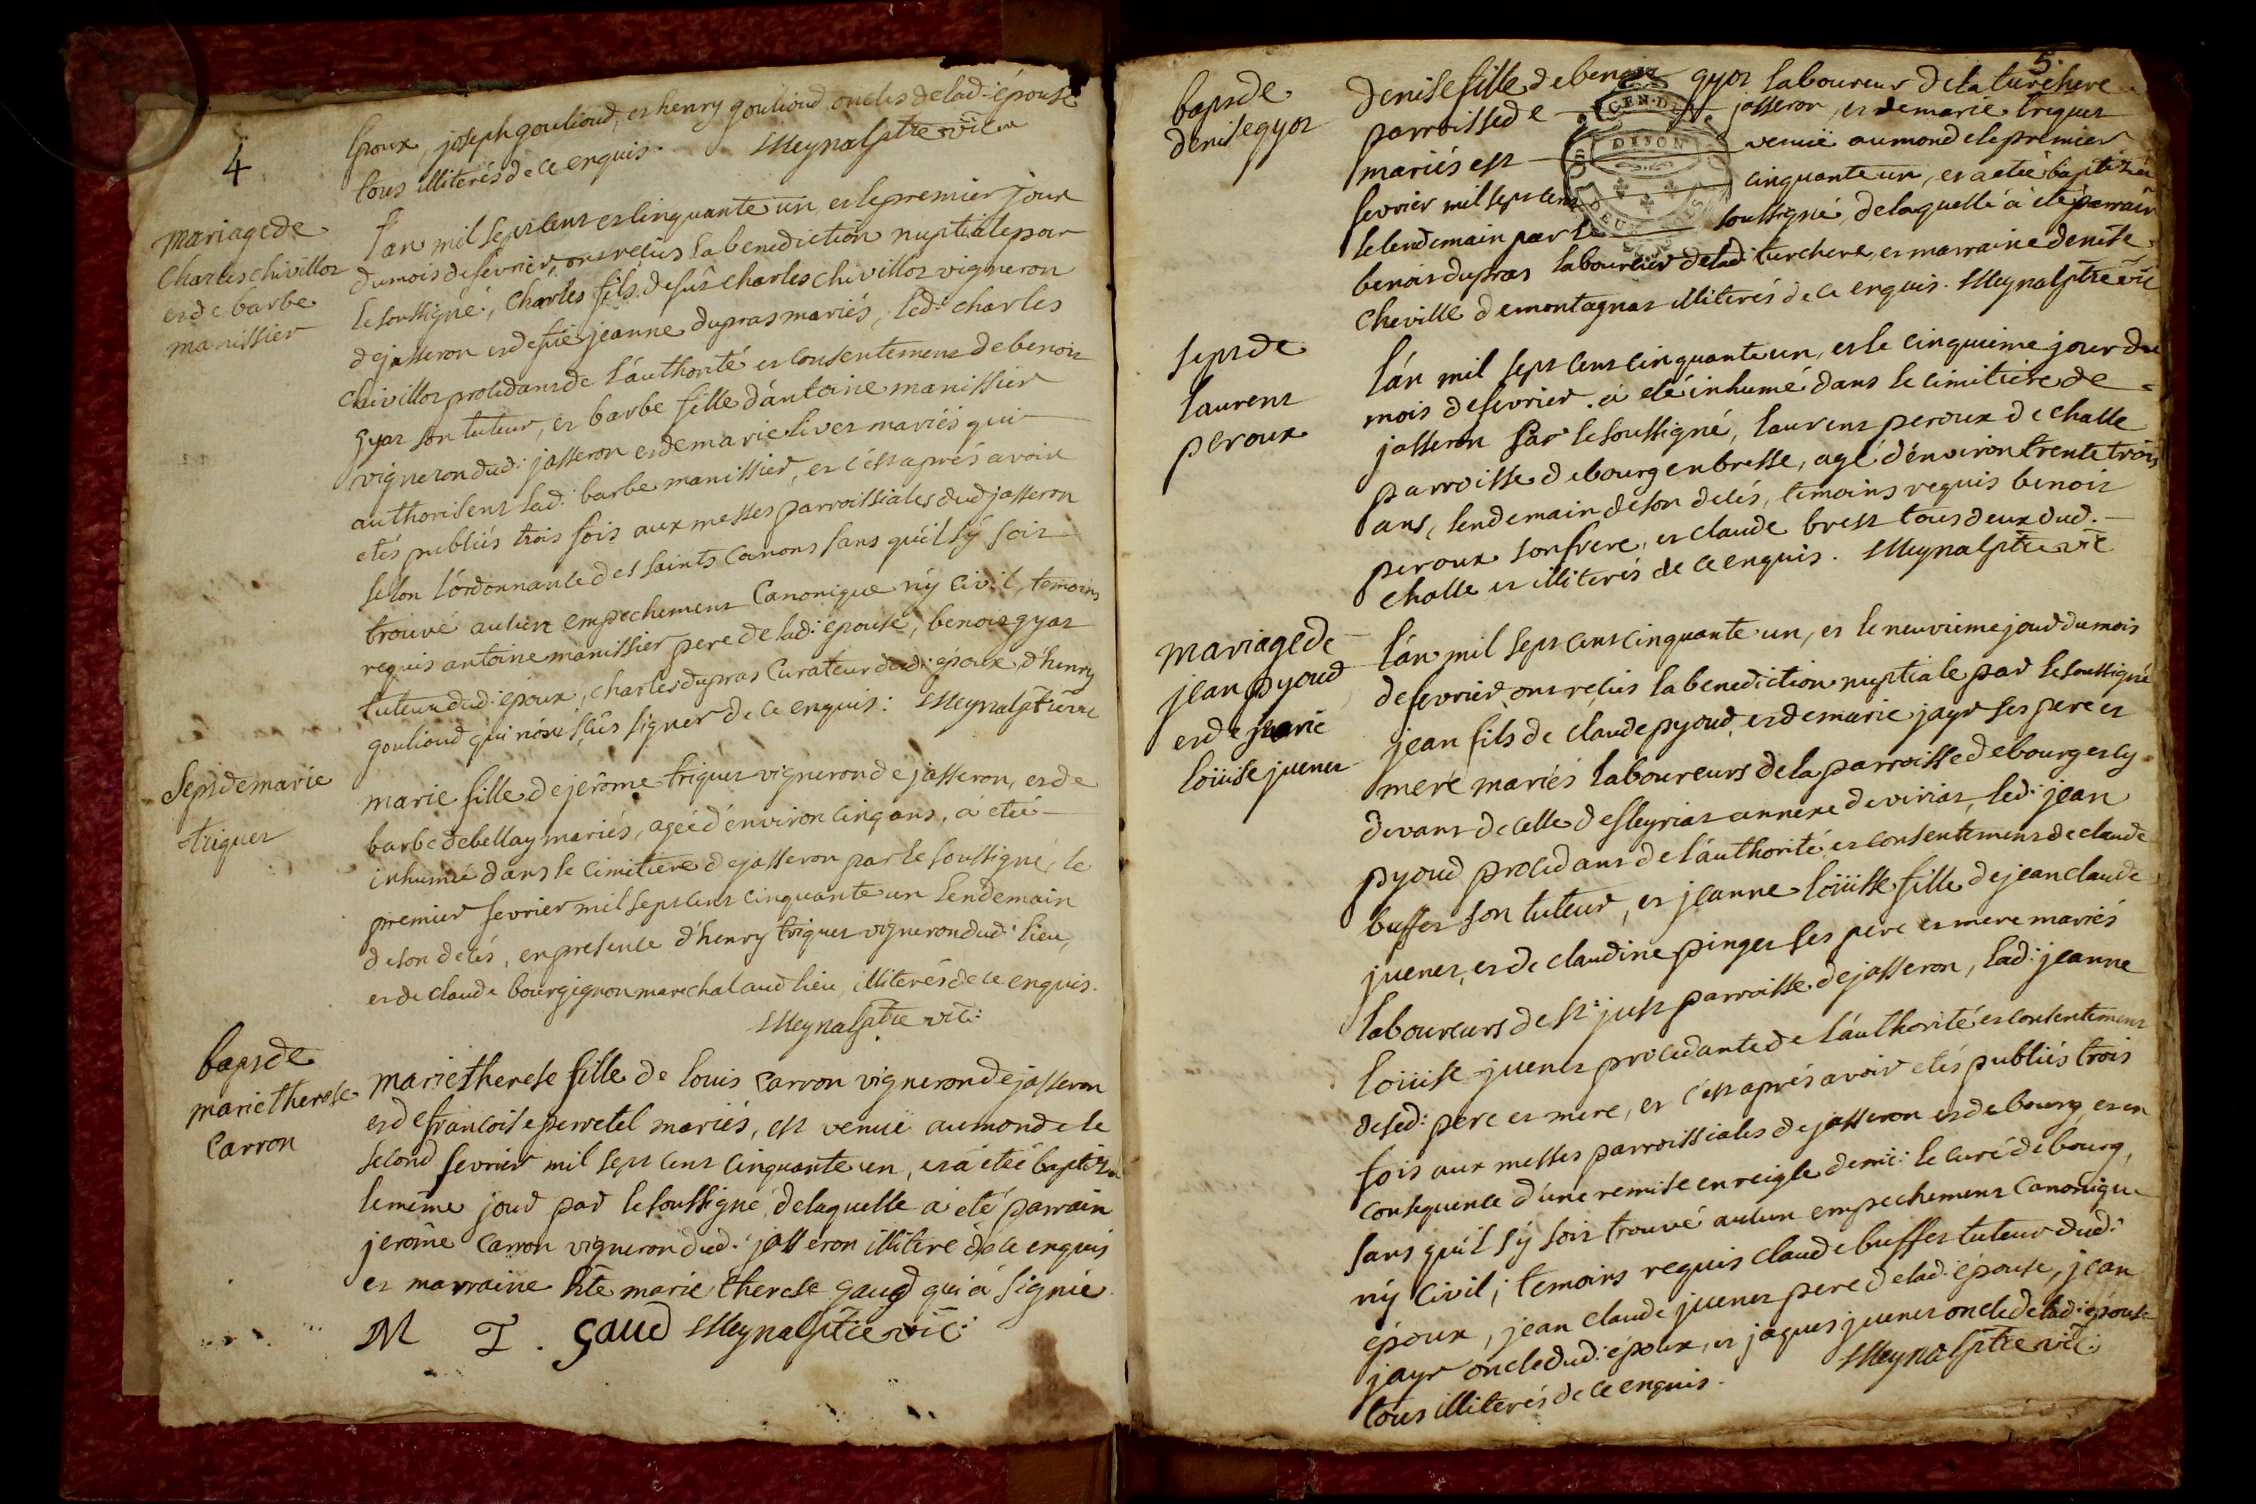 4
époux, joseph goulioud, et henry goulioud oncles de lad: épouse
tous illiterés de ce enquis. Meynal ptre vic
mariage de
Charles chivillot
et de barbe
manissier
l'an mil sept cent et cinquante un, et le premier jour
du mois de fevrier, ont reçus la benediction nuptiale par
le soussigné, Charles fils de fût charles chivillot vigneron
de jasseron et de füe jeanne dupras mariés, led: charles
chivillot procedant de l'authorité et consentement de benoit
gyat son tuteur, et barbe fille d'antoine manissier
vigneron dud: jasseron et de marie livet mariés qui
authorisent lad: barbe manissier, et c'est aprés avoir
etés publiés trois fois aux messes parroissiales dud jasseron
selon l'ordonnance des saints Canons sans qu'il s'y soit
trouvé aucun empechement Canonique n'y Civil, temoins
requis antoine manissier pere de lad: epouse, benoit gyat
tuteur dud: époux, charles dupras Curateur dud: époux, d'henry
goulioud qui n'ont sçûs signer de ce enquis: Meynal ptre vic
Sept de marie
triquet
marie fille de jerôme triquet vigneron de jasseron, et de
barbe debellay mariés, ageé d'environ cinq ans, a eteé
inhumeé dans le cimitiere de jasseron par le soussigné, le
premier fevrier mil sept cent cinquante un lendemain
de son decés, en presence d'henry triquet vigneron dud: lieu,
et de claude bourgignon marechal aud lieu, illiterés de ce enquis.
Meynal ptre vic:
bapt de
marie therese
Carron
marie therese fille de louis carron vigneron de jasseron
et de francoise perretel mariés, est venuë au monde le
second fevrier mil sept cent cinquante un, et á eteé baptizé
le même jour par le soussigné, de laquelle a été parrain
jerôme carron vigneron dud: jasseron illiteré de ce enquis
et marraine hte marie therese gaud qui á signé.
M T. gaud Meynal ptre vic:
5.
bapt de
denise gyot
denise fille de benoit gyot laboureur de la turchere
parroisse de jasseron, et de marie triquet
mariés est venuë au monde le premier
fevrier mil sept cent cinquante un, et a eteé baptizeé
le lendemain par le soussigné, de laquelle á eté parrain
benoit dupras laboureur de lad: turchere, et marraine denise
cheville de montagnat illiterés de ce enquis. Meynal ptre vic
Sept de
laurent
peroux
l'an mil sept cent cinquante un, et le cinquieme jour du
mois de fevrier. á eté inhumé dans le cimitiere de
jasseron par le soussigné, laurent peroux de challe
parroisse de bourg en bresse, agé d'environ trente trois
ans, lendemain de son decés, temoins requis benoit
peroux son frere, et claude brest tous deux dud.
challe et illiterés de ce enquis. Meynal ptre vic
mariage de
jean pyoud
et de jeanne
loüise juenet
l'an mil sept cent cinquante un, et le neuvieme jour du mois
de fevrier ont reçus la benediction nuptiale par le soussigné
jean fils de claude pyoud, et de marie jayr ses pere et
mere mariés laboureurs de la parroisse de bourg et cy
devant de celle de fleyriat annexe de viriat, led: jean
pyoud procedant de l'authorité et consentement de claude
buffet son tuteur, et jeanne loüise fille de jean claude
juenet, et de claudine pinget ses pere et mere mariés
laboureurs de st: just parroisse de jasseron, lad: jeanne
loüise juenet procedante de l'authorité et consentement
de sed: pere et mere, et c'est aprés avoir etés publiés trois
fois aux messes parroissiales de jasseron et de bourg, et en
consequence d'une remise en reigle de mr: le curé de bourg,
sans qu'il s'y soit trouvé aucun empechement Canonique
n'y Civil; temoins requis claude buffet tuteur dud:
époux, jean claude juenet pere de lad: épouse, jean
jayr oncle dud: époux, et jaques juenet oncle de lad: épouse
tous illiterés de ce enquis. Meynal ptre vic: